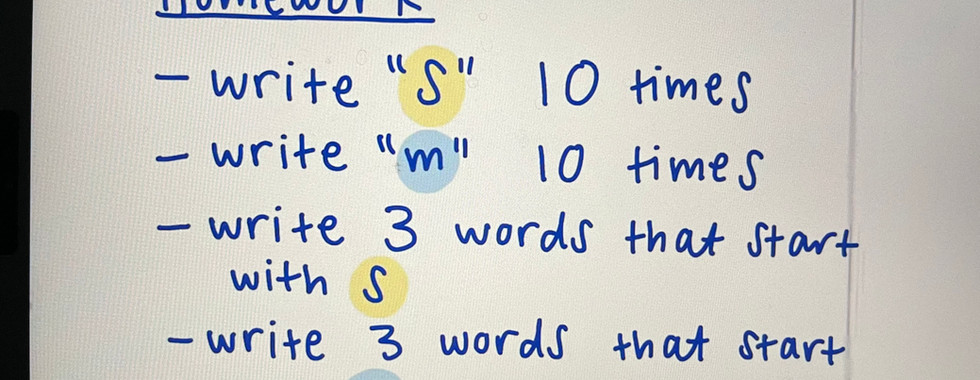 Homework
- write "S" 10 times
- write "m" 10 times
- write 3 words that start
with s
- write 3 words that start